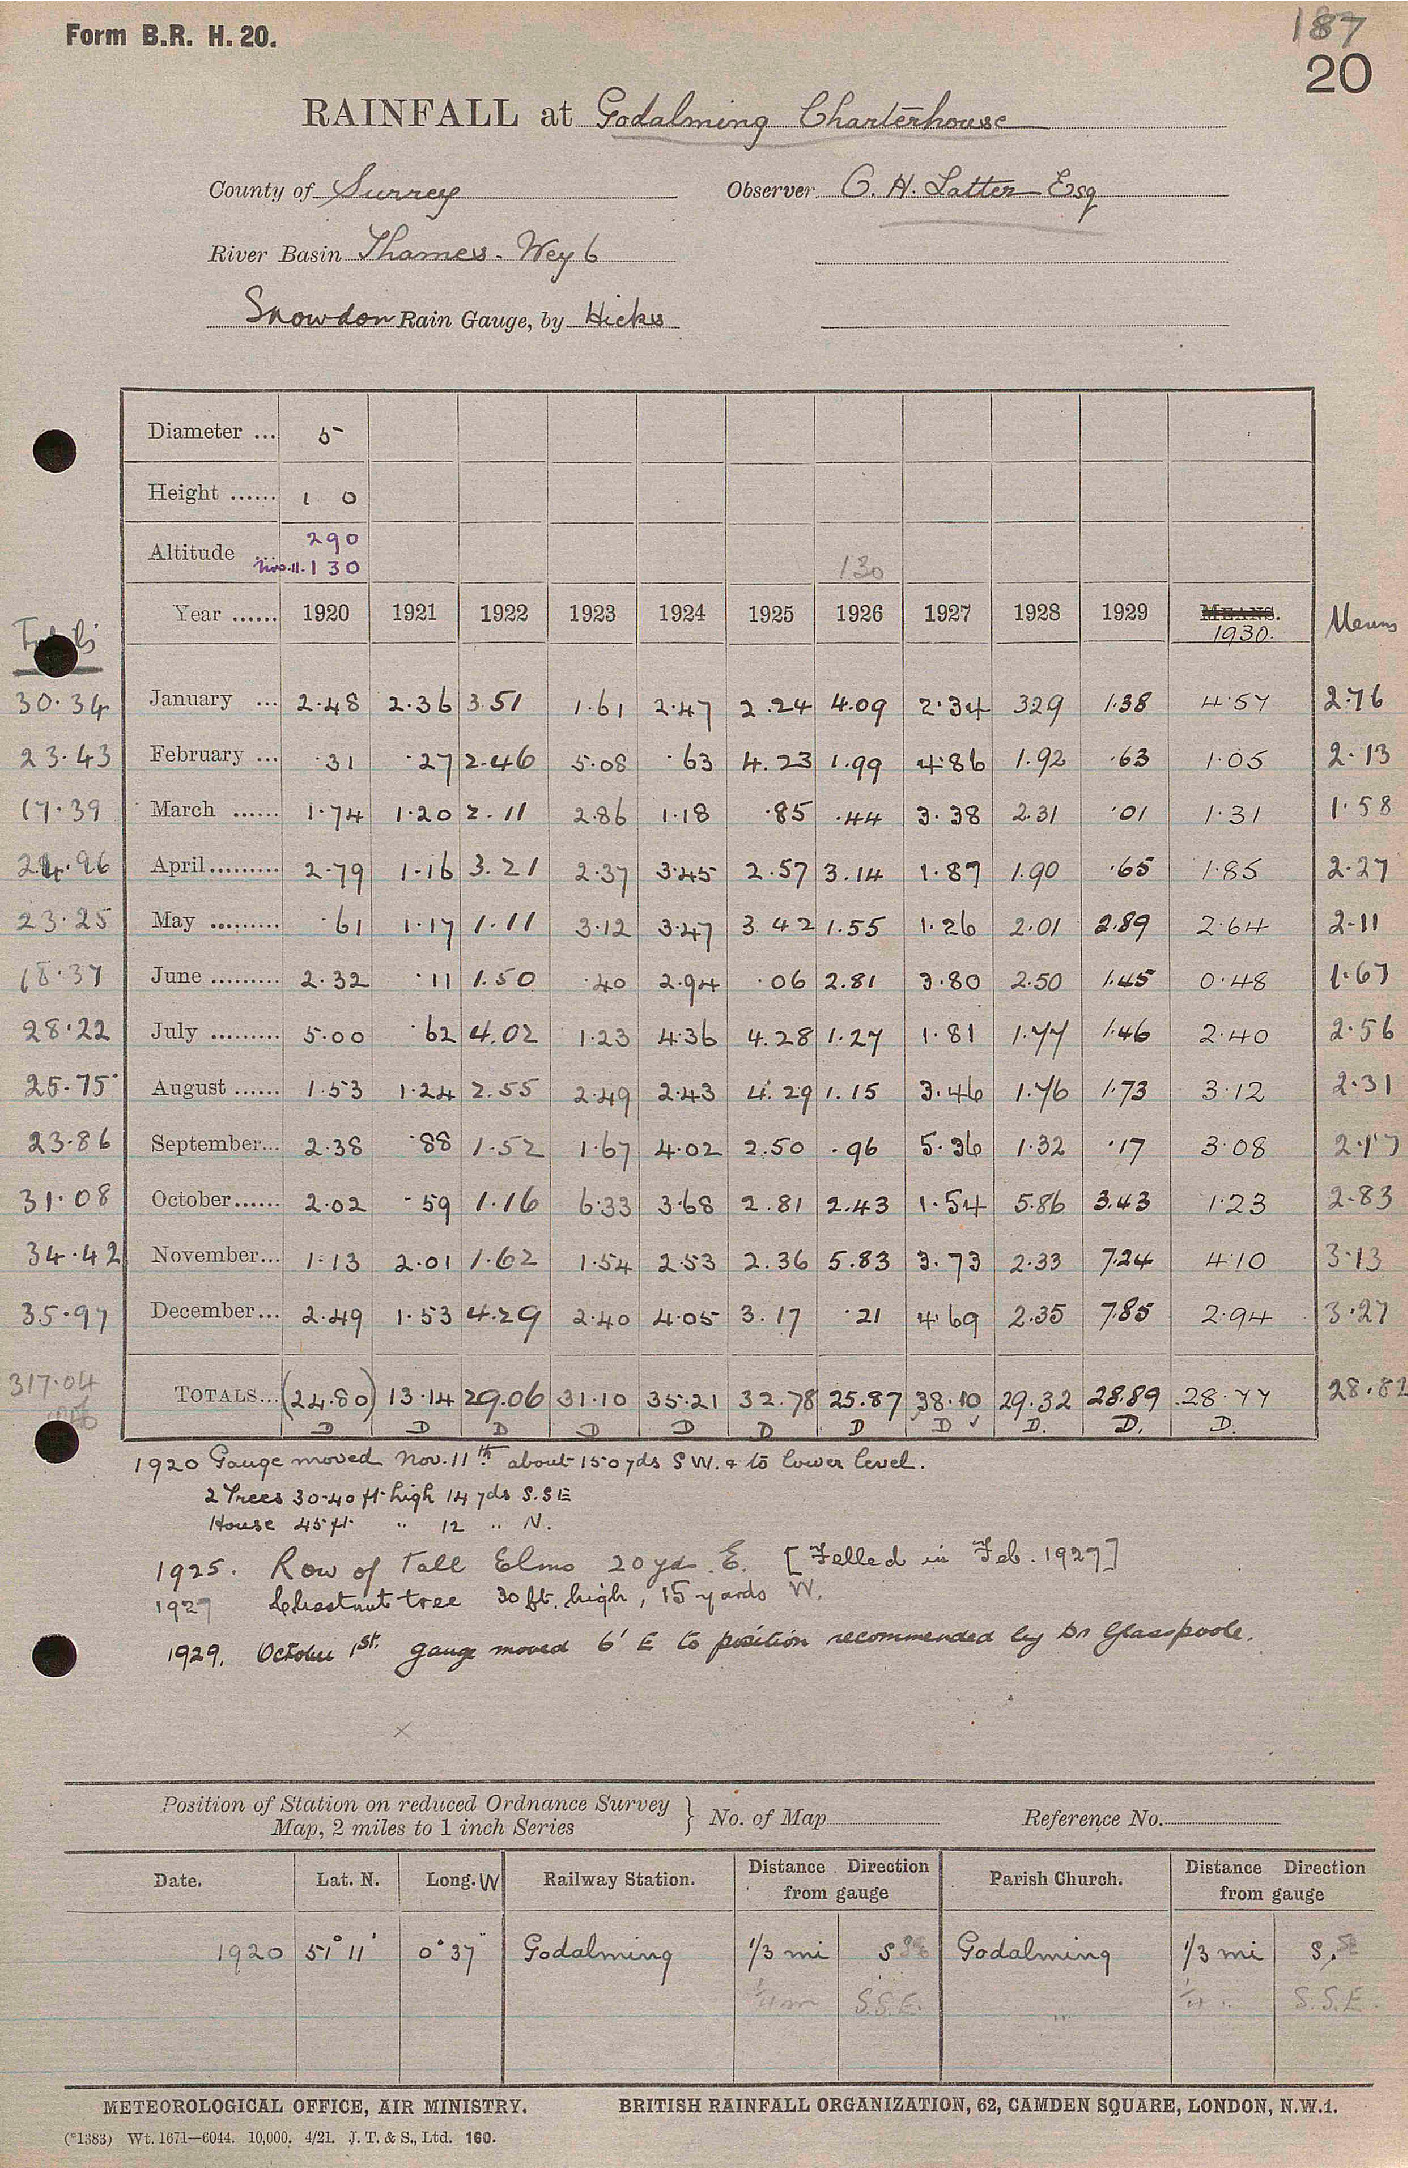 187
Form B.R. H. 20.
20
RAINFALL at Godalming Charterhouse
County of Surrey Observer O. H. Latter Esq
River Basin Thames. Wey 6
Snowdon Rain Gauge, by Hicks
Diameter ... 5
Height ...... 1 0
Altitude ... 290
Nov. 11. 130 130
Totals Year ...... 1920 1921 1922 1923 1924 1925 1926 1927 1928 1929 MEANS. 1930. Means
30.34 January ... 2.48 2.36 3.51 1.61 2.47 2.24 4.09 2.34 329 1.38 4.57 2.76
23.43 February ... .31 .27 2.46 5.08 .63 4.23 1.99 4.86 1.92 .63 1.05 2.13
17.39 March ...... 1.74 1.20 2.11 2.86 1.18 .85 .44 3.38 2.31 .01 1.31 1.58
24.96 April ......... 2.79 1.16 3.21 2.37 3.45 2.57 3.14 1.87 1.90 .65 1.85 2.27
23.25 May ......... .61 1.17 1.11 3.12 3.47 3.42 1.55 1.26 2.01 2.89 2.64 2.11
18.37 June ......... 2.32 .11 1.50 .40 2.94 .06 2.81 3.80 2.50 1.45 0.48 1.67
28.22 July ......... 5.00 .62 4.02 1.23 4.36 4.28 1.27 1.81 1.77 1.46 2.40 2.56
25.75 August ...... 1.53 1.24 2.55 2.49 2.43 4.29 1.15 3.46 1.76 1.73 3.12 2.31
23.86 September... 2.38 .88 1.52 1.67 4.02 2.50 .96 5.36 1.32 .17 3.08 2.17
31.08 October...... 2.02 .59 1.16 6.33 3.68 2.81 2.43 1.54 5.86 3.43 1.23 2.83
34.42 November... 1.13 2.01 1.62 1.54 2.53 2.36 5.83 3.73 2.33 7.24 4.10 3.13
35.97 December... 2.49 1.53 4.29 2.40 4.05 3.17 .21 4.69 2.35 7.85 2.94 3.27
317.04 TOTALS... (24.80) 13.14 29.06 31.10 35.21 32.78 25.87 38.10 29.32 28.89 28.77 28.82
D D D D D D D D ✓ D. D. D.
1920 Gauge moved Nov. 11th. about 150 yds S W. & to lower level.
2 Trees 30-40 ft high 14 yds S.SE
House 45 ft " 12 " N.
1925. Row of Tall Elms 20 yd. E. [Felled in Feb. 1927]
1927 Chestnut tree 30 ft. high, 15 yards W.
1929. October 1st. gauge moved 6' E to position recommended by Dr Glasspoole.
Position of Station on reduced Ordnance Survey Map, 2 miles to 1 inch Series } No. of Map Reference No.
Date. Lat. N. Long. W Railway Station. Distance Direction from gauge Parish Church. Distance Direction from gauge
1920 51° 11' 0° 37" Godalming 1/3 mi S Godalming 1/3 mi S.
S.S.E. " S.S.E.
METEOROLOGICAL OFFICE, AIR MINISTRY. BRITISH RAINFALL ORGANIZATION, 62, CAMDEN SQUARE, LONDON, N.W.1.
(*1383) Wt. 1671—6044. 10,000. 4/21. J. T. & S., Ltd. 160.